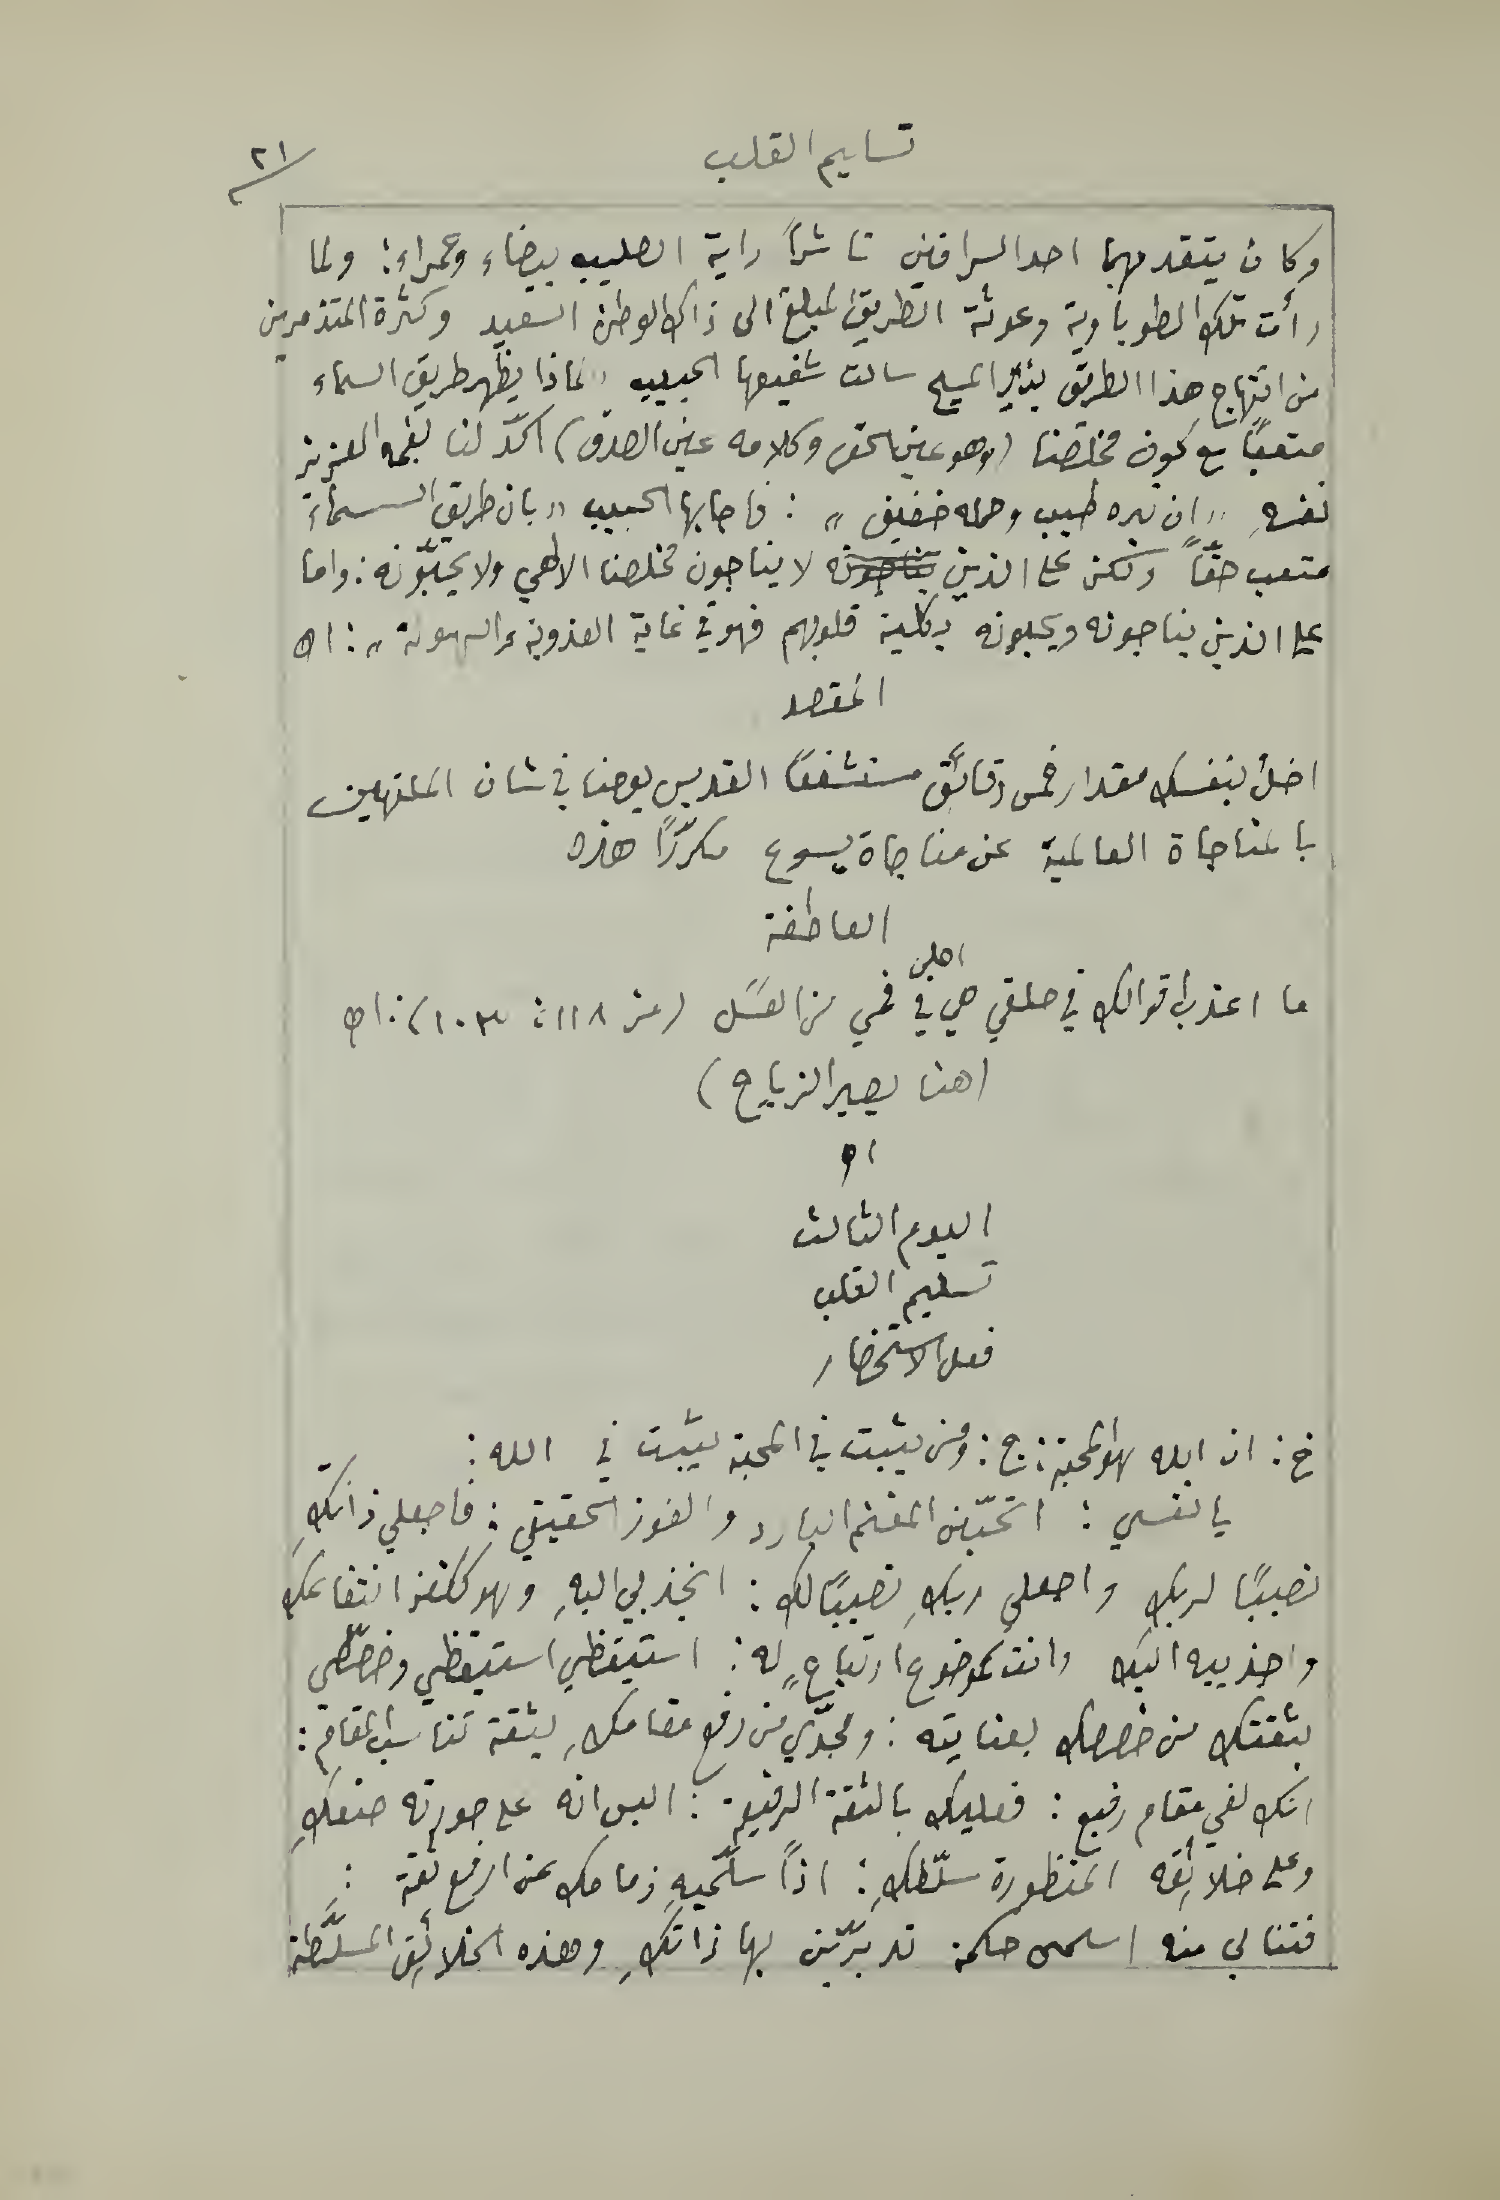 تسليم القلب
٢١
وكان يتقدمهما احد السرافين ناشراً راية الصليب بيضاء وحمراء: ولما
رأت تلك الطوباوية وعوثة الطريق المبلغ الى ذاك الوطن السعيد وكثرة المتذمرين
من انتهاج هذا الطريق بنير المسيح سالت شفيعها الحبيب "لماذا يظهر طريق السماء
متعبًا مع كون مخلصنا (وهو عين الحق وكلامه عين الصدق) اكّد لنا بفمه العزيز
نفسهِ "ان نيره طيب وحمله خفيف" : فاجابها الحبيب "بان طريق السماء
متعب حقًّا ولكن على الذين لا يناجون مخلصنا الالهي ولا يحبّونه: واما
على الذين يناجونه ويحبونه بكلية قلوبهم فهو في غاية العذوبة والسهولة": اه
المقصد
اخلُ بنفسك مقدار خمس دقائق مستشفعًا القديس يوحنا في شان الملتهين
بالمناجاة العالمية عن مناجاة يسوع مكررًا هذه
العاطفة
ما اعذب اقوالك في حلقي هي احلى في فمي من العسل (مز ١١٨: ١٠٣): اه
(هنا يصير الزياح)
اه
اليوم الثالث
تسليم القلب
فعل الاستحضار
خ: ان الله هو المحبة: ج: ومن يثبت في المحبة يثبت في الله:
يا نفسي: اتحبّين المغنم البارد والفوز الحقيقي: فاجعلي ذاتكِ
نصيبًا لربكِ واجعلي ربكِ نصيبًا لك: انجذبي اليهِ وهو ككنز انتفاعك
واجذبيه اليك وانتِ كموضوع ارتياحٍ له: استيقظي استيقظي وخصّصي
بثقتك من خصصك بعنايته: ومجدّي من رفع مقامكِ بثقة تناسب المقام:
انك لفي مقام رفيع: فعليك بالثقة الرفيعة: اليس انه على صورته صنعكِ
وعلى خلائقه المنظورة سلّطكِ: اذاً سلّميهِ زمامك عن ارفع ثقة:
فتنالي منه اسمى حكمة تدبرّين بها ذاتكِ وهذه الخلائق المسلَّطة